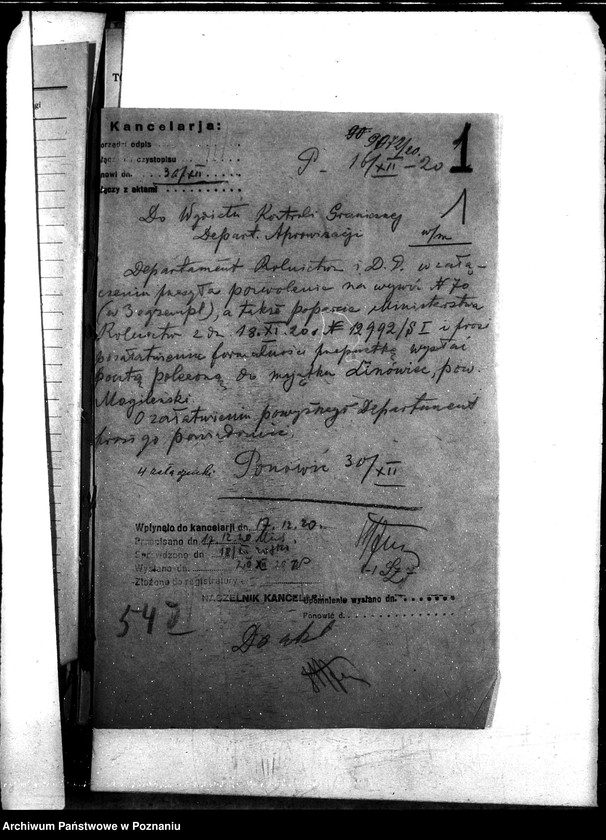 Kancelarja:
odpis
czystopisu
30/XII
z aktami
9072/20.
P. 16/XII-20
1
1
Do Wydziału Kontroli Granicznej
Depart. Aprowizacji w/m
Departament Rolnictwa i D.P. w załą-
czeniu przesyła pozwolenie na wywóz № 70
(w 3 egzempl), a także poparcie Ministerstwa
Rolnictwa z dn. 18.XI.20 r. № 12992/S I i prosi
po załatwieniu formalności przepustkę wysłać
pocztą poleconą do majątku Linowiec, pow.
Mogileński.
O załatwieniu powyższego Departament
prosi go powiadomić.
4 załączniki Ponowić 30/XII
Wpłynęło do kancelarji dn. 17.12.20.
Przepisano dn. 17.12.20
Sprawdzono dn. 18/XII
Wysłano dn. 20 XII 20
Złożono do registratury
NACZELNIK KANCELARJI
Upomnienie wysłano dn.
Ponowić d.
Do akt
Archiwum Państwowe w Poznaniu